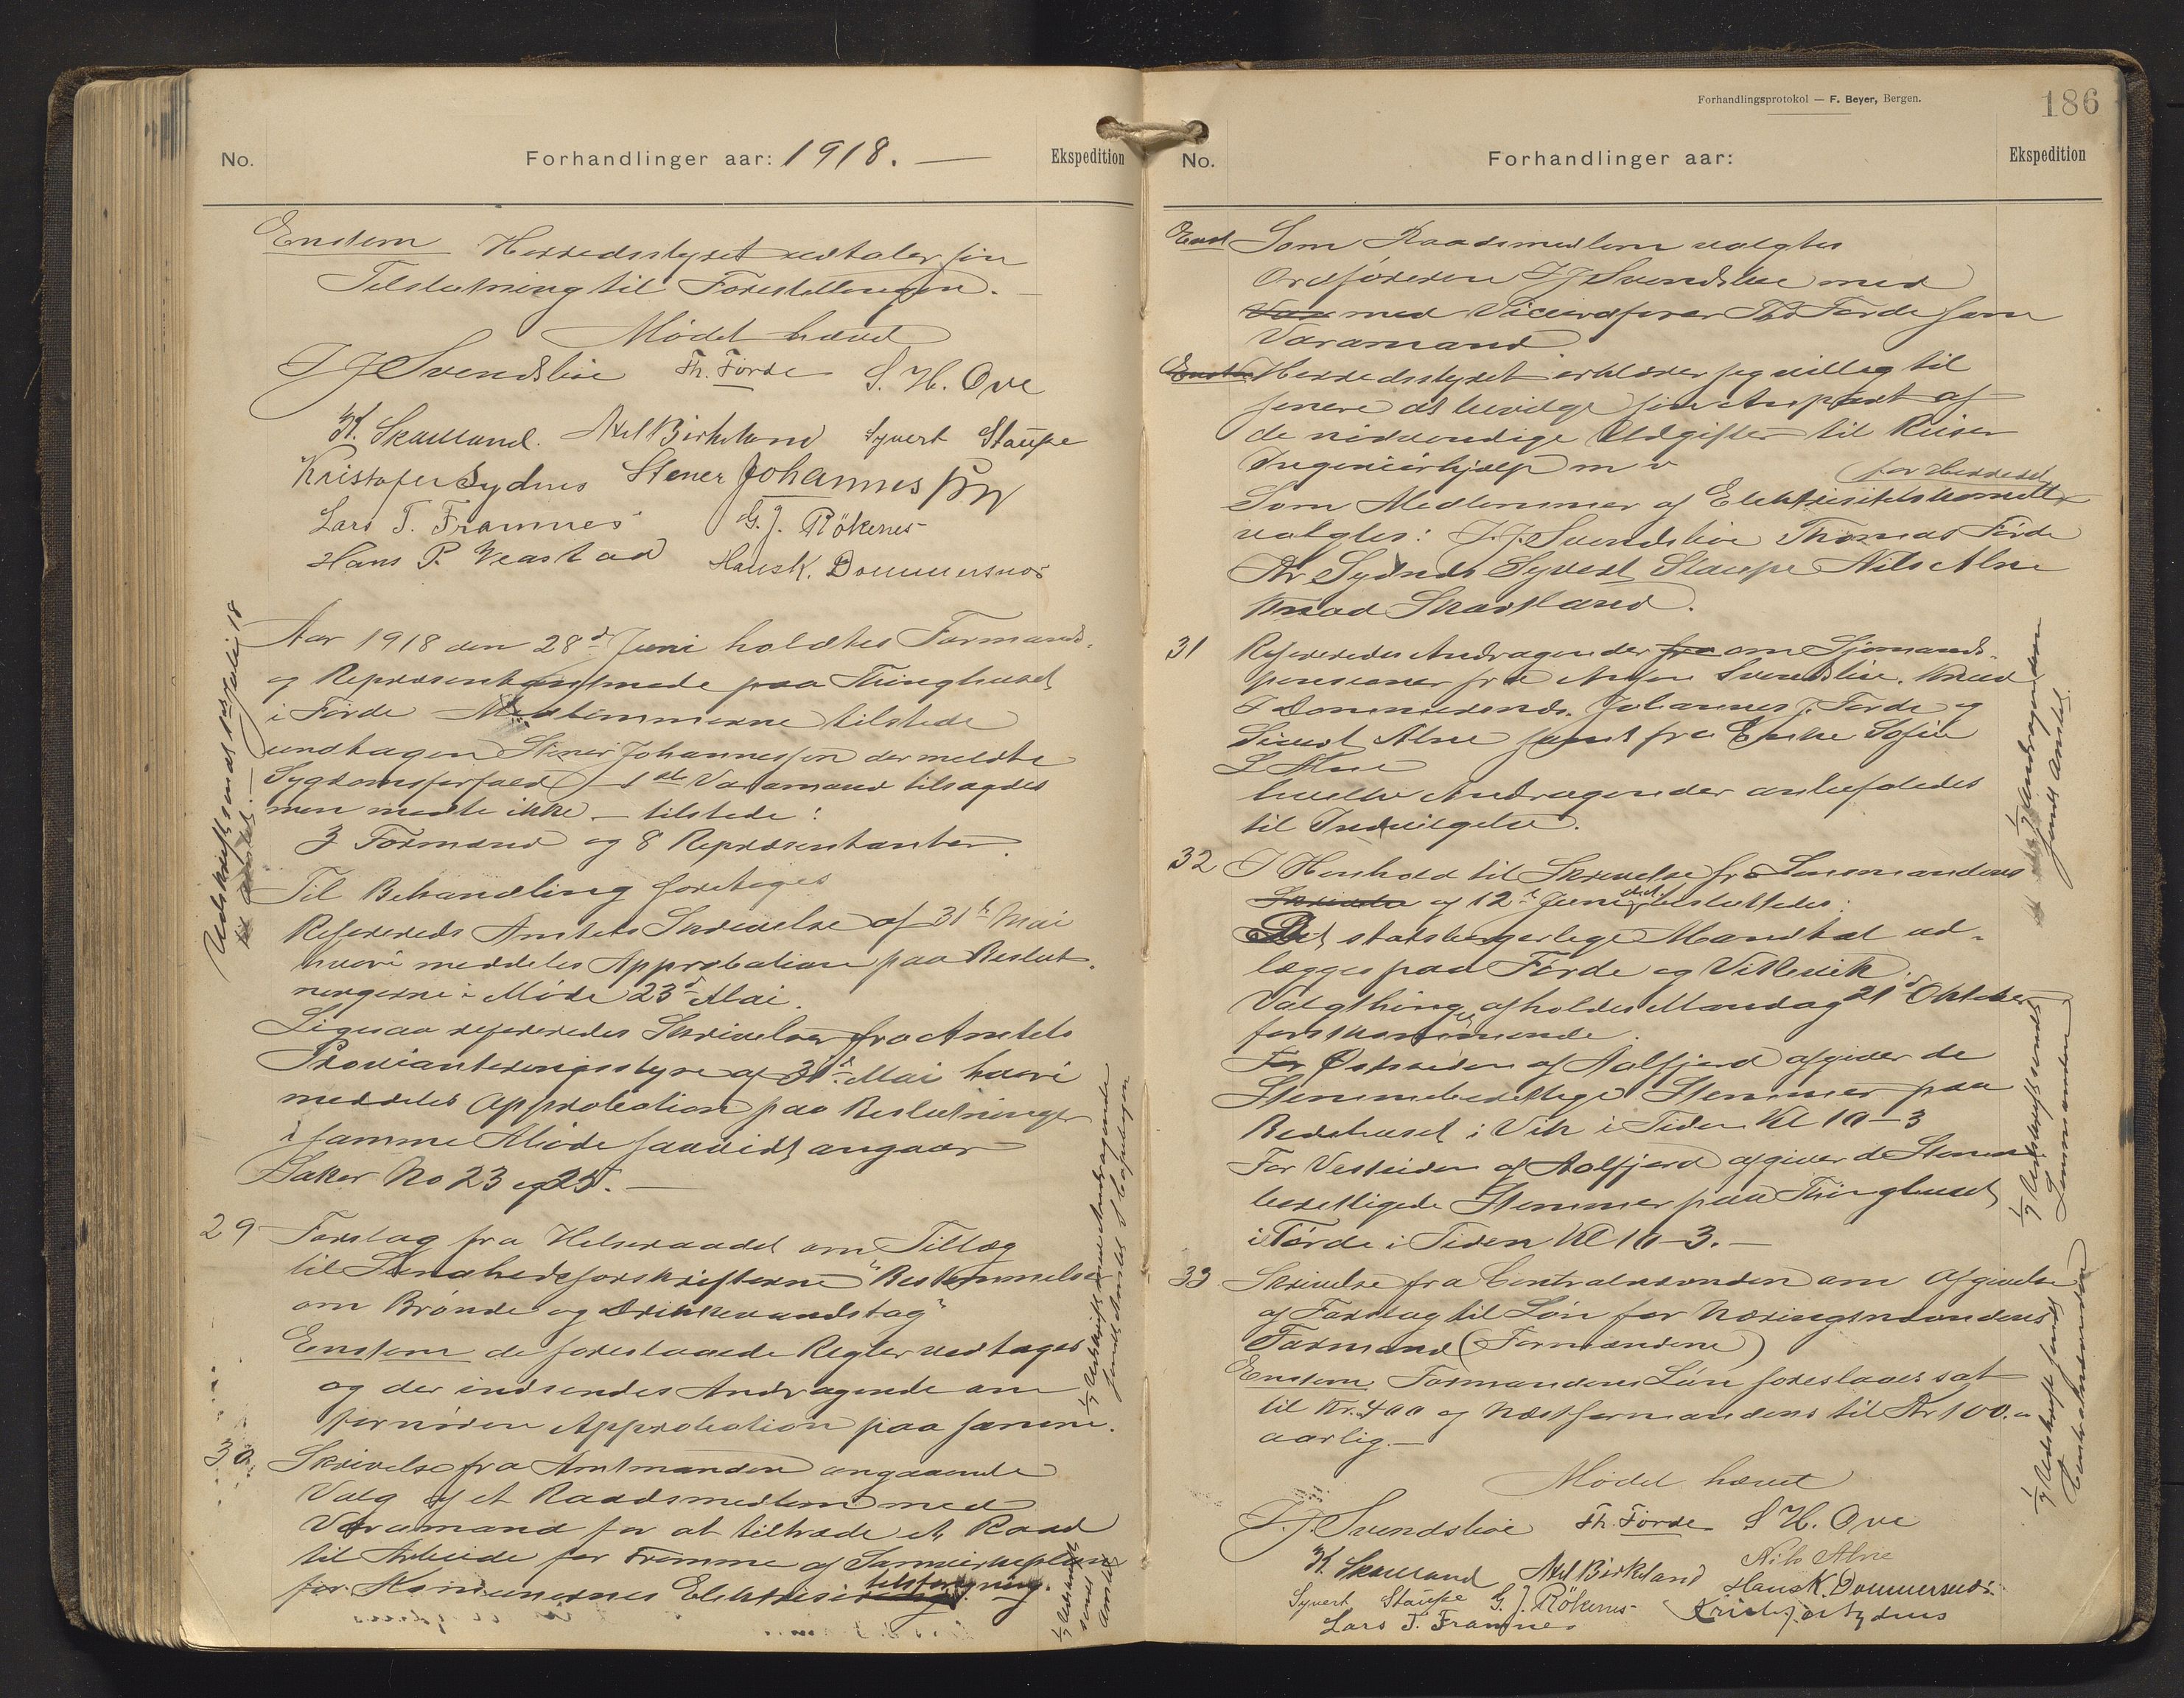 No. Forhandlinger aar: 1918. — Ekspedition
Enstem Herredsstyret vedtaler sin
Tilslutning til Forestillingen. —
Mødet hævet
J J Svendsbøe Th. Förde S. H. Ove
K. Skavland. Axel Birkeland Syvert Staupe
Kristofer Sydnes Stener Johannessen
Lars T. Framnes G. J. Rökenes
Hans P. Veastad Hans K. Dommersnes
Aar 1918 den 28d Juni holdtes Formands
og Repræsentantmøde paa Thinghuset
i Førde Medlemmerne tilstede
undtagen Stener Johannessen der meldte
Sygdomsforfald 1ste Varamand tilsagdes
men mødte ikke. — tilstede:
3 Formænd og 8 Repræsentanter.
Til Behandling foretoges
Refereredes Amtets Skrivelse af 31te Mai
hvori meddeles Approbation paa Beslut-
ningerne i Møde 23d Mai.
Ligesaa refereredes Skrivelse fra Amtets
Provianteringsstyre af 31te Mai hvori
meddeles Approbation paa Beslutninger
i samme Møde saavidt angaar
Saker No 23 og 25. —
29 Forslag fra Helseraadet om Tillæg
til Sundhedsforskrifterne "Bestemmelse
om Brønde og Drikkevandstag"
Enstem de foreslaaede Regler vedtages
og der indsendes Andragende om
fornøden Approbation paa samme.
30. Skrivelse fra Amtmanden angaaende
Valg af et Raadsmedlem med
Varamand for at tiltræde et Raad
til Arbeide for Fremme af Samvirkeplan
for Kommunernes Elektrisitetsforsyning.
Udskrift sendt
Amtet
1/7 Udskrift med Andragende
sendt Amtet
1/7 Udskrift
sendt
Amtet
Forhandlingsprotokol — F. Beyer, Bergen.
186
No. Forhandlinger aar: Ekspedition
Enst Som Raadsmedlem valgtes
Ordføreren J J Svendsbøe med
Vara med Viceordfører Th Førde som
Varamand
Enstem Herredsstyret erklærer seg villig til
senere at bevilge sin Anpart af
de nødvendige Udgifter til Reiser
Ingeniørhjælp m v
for Herredet
Som Medlemmer af Elektrisitetskomite
valgtes: J. J. Svendsbøe Thomas Førde
Kr Sydnes Syvert Staupe Nils Alne
Knud Skavland.
31 Refereredes Andragender fra om Sjømands-
pensioner fra Svendsbøe. Knud
J Dommersnes. Johannes J. Førde og
Sivert Alne samt fra Enke Sofie
L Alne
hvilke Andragender anbefaledes
til Indvilgelse.
32 I Henhold til Skrivelse fra Lensmanden
Skrivelse af 12te Juni besluttedes:
Det statsborgerlige Mandtal ud-
lægges paa Førde og Vikevik.
Valgthinget afholdes Mandag 21d Oktober
førstkommende.
For Østsiden af Aalfjord afgiver de
Stemmeberettige Stemmer paa
Bedehuset i Vik i Tiden Kl 10-3
For Vestsiden af Aalfjord afgiver de Stemme
berettigede Stemmer paa Thinghuset
i Førde i Tiden Kl 10-3. —
33 Skrivelse fra Centralnævnden om Afgivelse
af Forslag til Løn for Næringsnævndens
Formand (Formændene)
Enstem Formandens Løn foreslaaes sat
til Kr. 400 og Næstformandens til Kr 100.-
aarlig. —
Mødet hævet
J. J. Svendsbøe Th. Förde S H. Ove
K Skavland Axel Birkeland Nils Alne
Syvert Staupe G. J. Rökenes Hans K. Dommersnes
Lars T. Framnes Kristofer Sydnes
Andragenderne
sendt Amtet
1/7 Udskrift sendt
Lensmanden
1/7 Udskrift sendt
Centralnævnden